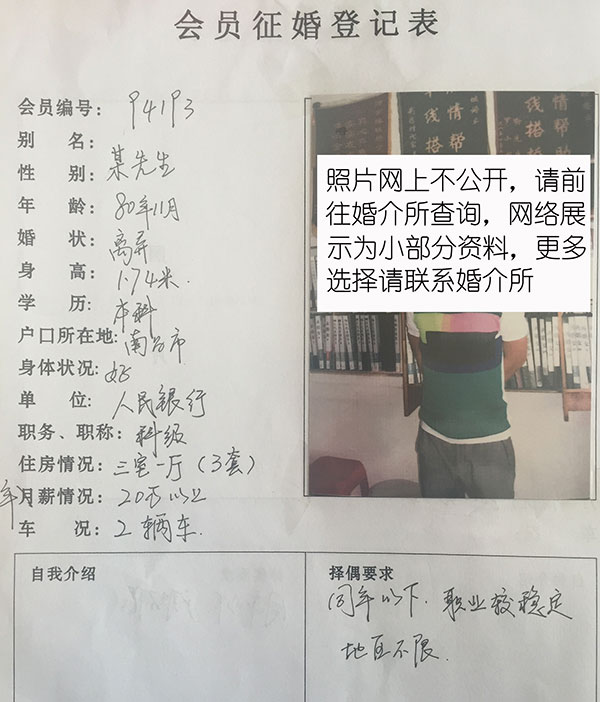 会员征婚登记表
会员编号: 94193
别 名:
性 别: 某先生
年 龄: 80年11月
婚 状: 离异
身 高: 1.74米.
学 历: 本科
户口所在地: 南昌市
身体状况: 好
单 位: 人民银行
职务、职称: 科级
住房情况: 三室一厅（3套）
年月薪情况: 20万以上
车 况: 2辆车.
情帮
线搭
照片网上不公开，请前
往婚介所查询，网络展
示为小部分资料，更多
选择请联系婚介所
自我介绍
择偶要求
同年以下. 职业较稳定
地区不限.